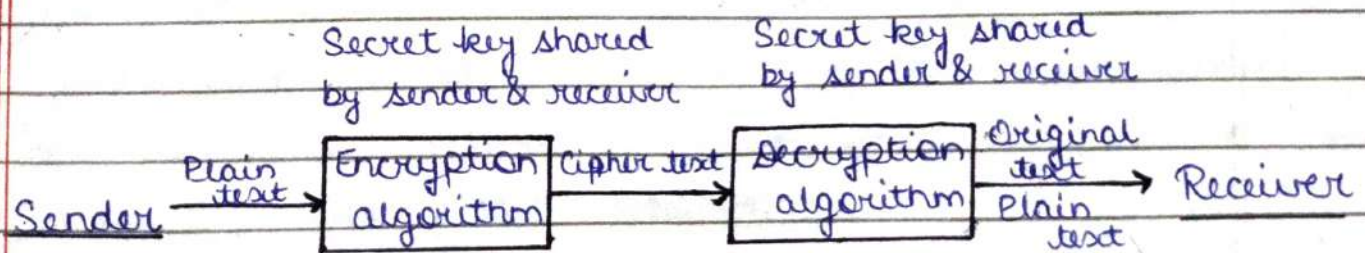 Secret key shared
by sender & receiver
Secret key shared
by sender & receiver
Sender
Plain
text
Encryption
algorithm
Cipher text
Decryption
algorithm
Original
text
Plain
text
Receiver